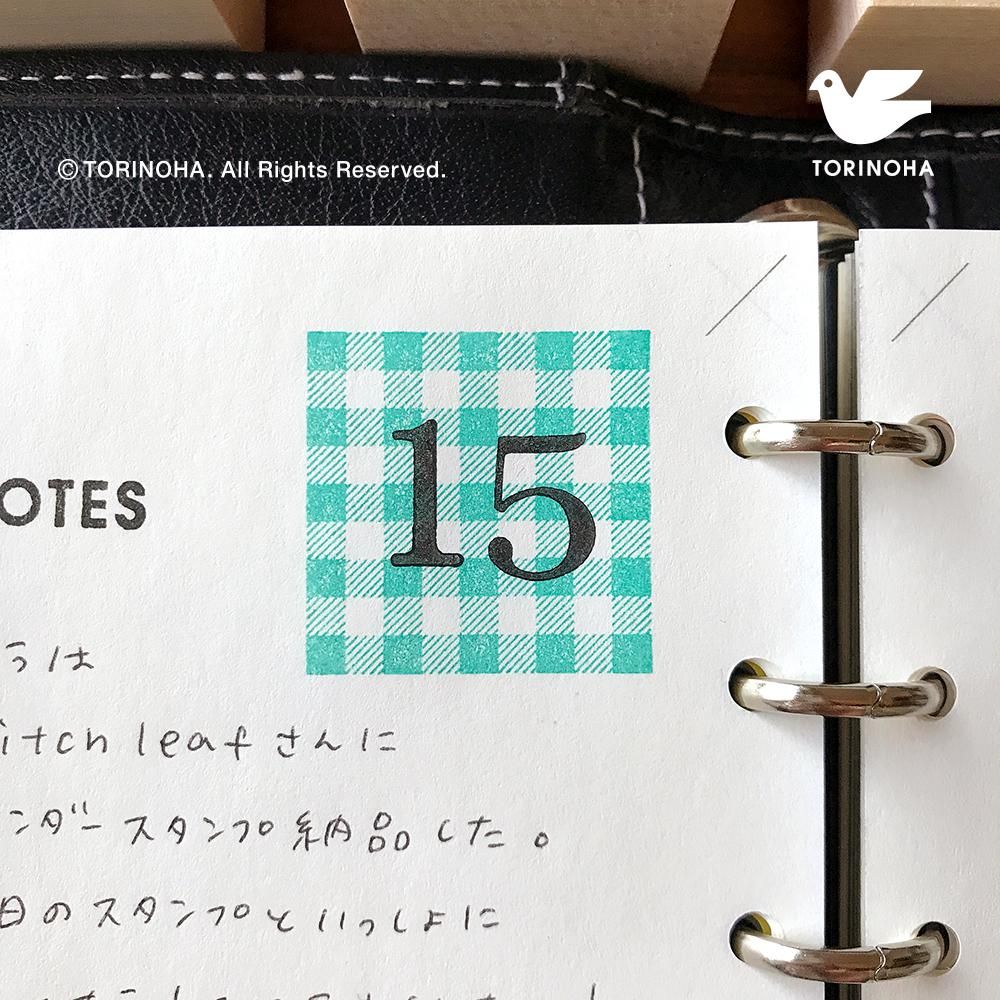 ©TORINOHA. All Rights Reserved.
TORINOHA
15
OTES
うは
itch leaf さんに
ンダースタンプ納品した。
日のスタンプといっしょに